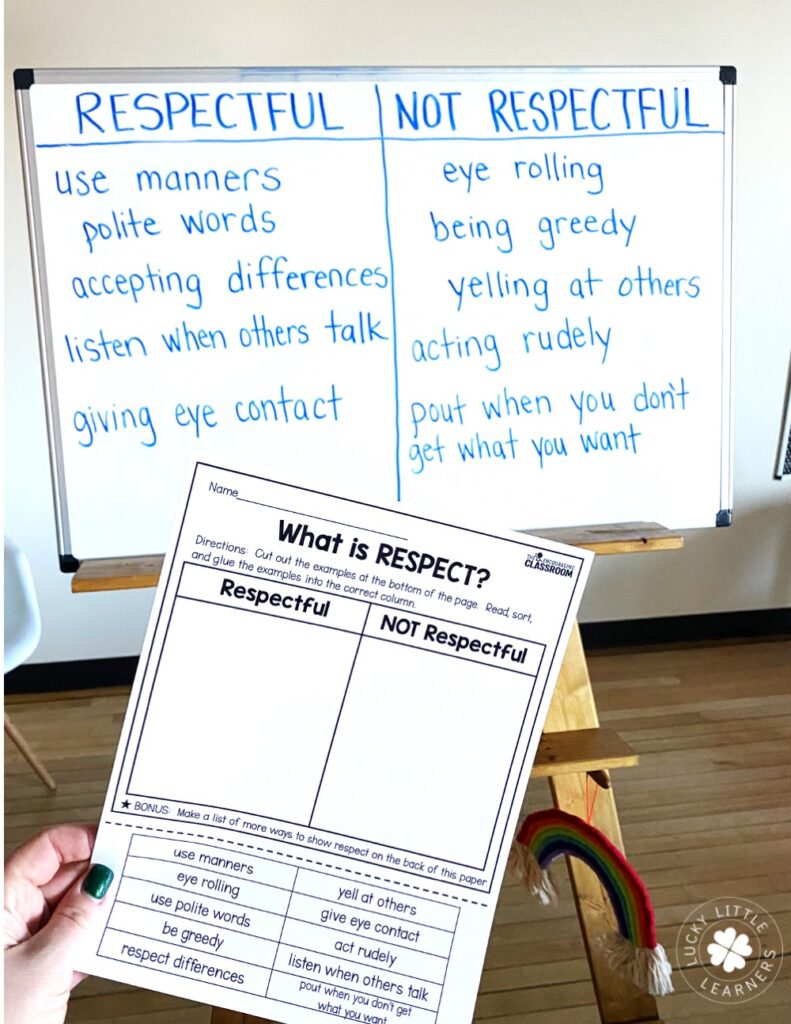 RESPECTFUL
use manners
polite words
accepting differences
listen when others talk
giving eye contact
NOT RESPECTFUL
eye rolling
being greedy
yelling at others
acting rudely
pout when you don't
get what you want
Name
THE ENCOURAGING
CLASSROOM
What is RESPECT?
Directions: Cut out the examples at the bottom of the page. Read, sort,
and glue the examples into the correct column.
Respectful
NOT Respectful
★ BONUS: Make a list of more ways to show respect on the back of this paper.
use manners
eye rolling
use polite words
be greedy
respect differences
yell at others
give eye contact
act rudely
listen when others talk
pout when you don't get
what you want
LUCKY LITTLE
LEARNERS